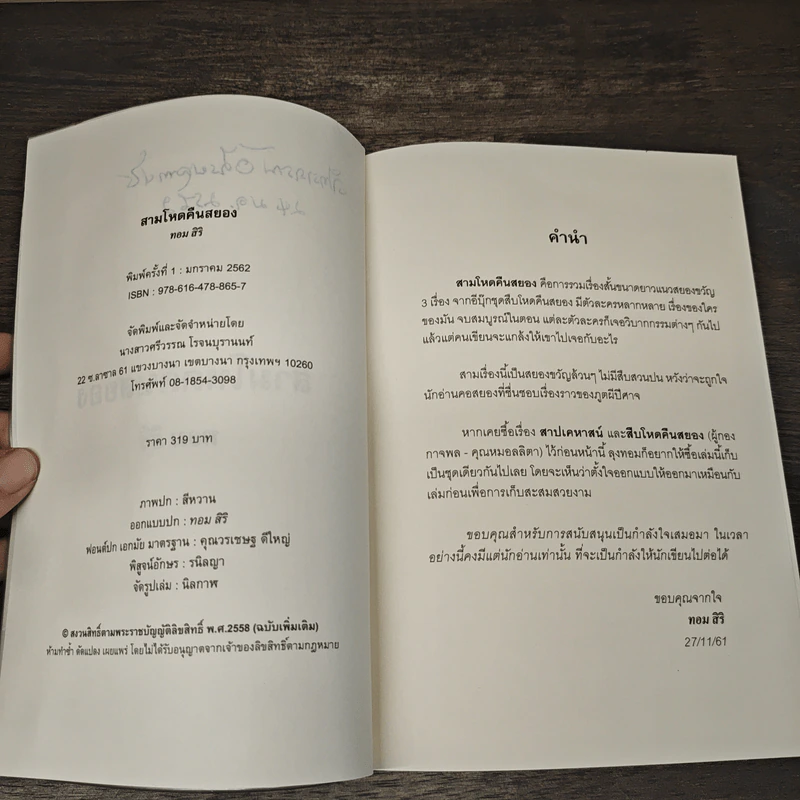 สามโหดคืนสยอง
ทอม สิริ
พิมพ์ครั้งที่ 1 : มกราคม 2562
ISBN : 978-616-478-865-7
จัดพิมพ์และจัดจำหน่ายโดย
นางสาวศรีวรรณ โรจนบุรานนท์
22 ซ.ลาซาล 61 แขวงบางนา เขตบางนา กรุงเทพฯ 10260
โทรศัพท์ 08-1854-3098
ราคา 319 บาท
ภาพปก : สีหวาน
ออกแบบปก : ทอม สิริ
ฟอนต์ปก เอกมัย มาตรฐาน : คุณวรเชษฐ ดีใหญ่
พิสูจน์อักษร : รนิลญา
จัดรูปเล่ม : นิลกาฬ
© สงวนสิทธิ์ตามพระราชบัญญัติลิขสิทธิ์ พ.ศ.2558 (ฉบับเพิ่มเติม)
ห้ามทำซ้ำ ดัดแปลง เผยแพร่ โดยไม่ได้รับอนุญาตจากเจ้าของลิขสิทธิ์ตามกฎหมาย
คำนำ
สามโหดคืนสยอง คือการรวมเรื่องสั้นขนาดยาวแนวสยองขวัญ
3 เรื่อง จากอีบุ๊กชุดสืบโหดคืนสยอง มีตัวละครหลากหลาย เรื่องของใคร
ของมัน จบสมบูรณ์ในตอน แต่ละตัวละครก็เจอวิบากกรรมต่างๆ กันไป
แล้วแต่คนเขียนจะแกล้งให้เขาไปเจอกับอะไร
สามเรื่องนี้เป็นสยองขวัญล้วนๆ ไม่มีสืบสวนปน หวังว่าจะถูกใจ
นักอ่านคอสยองที่ชื่นชอบเรื่องราวของภูตผีปีศาจ
หากเคยซื้อเรื่อง สาปเคหาสน์ และสืบโหดคืนสยอง (ผู้กอง
กาจพล - คุณหมอลลิตา) ไว้ก่อนหน้านี้ ลุงทอมก็อยากให้ซื้อเล่มนี้เก็บ
เป็นชุดเดียวกันไปเลย โดยจะเห็นว่าตั้งใจออกแบบให้ออกมาเหมือนกับ
เล่มก่อนเพื่อการเก็บสะสมสวยงาม
ขอบคุณสำหรับการสนับสนุนเป็นกำลังใจเสมอมา ในเวลา
อย่างนี้คงมีแต่นักอ่านเท่านั้น ที่จะเป็นกำลังให้นักเขียนไปต่อได้
ขอบคุณจากใจ
ทอม สิริ
27/11/61